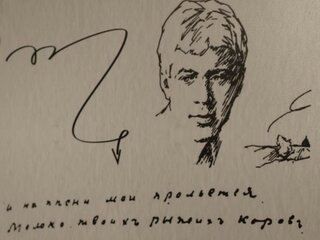 и на песни мои прольется
молоко твоихъ рыжихъ коровъ